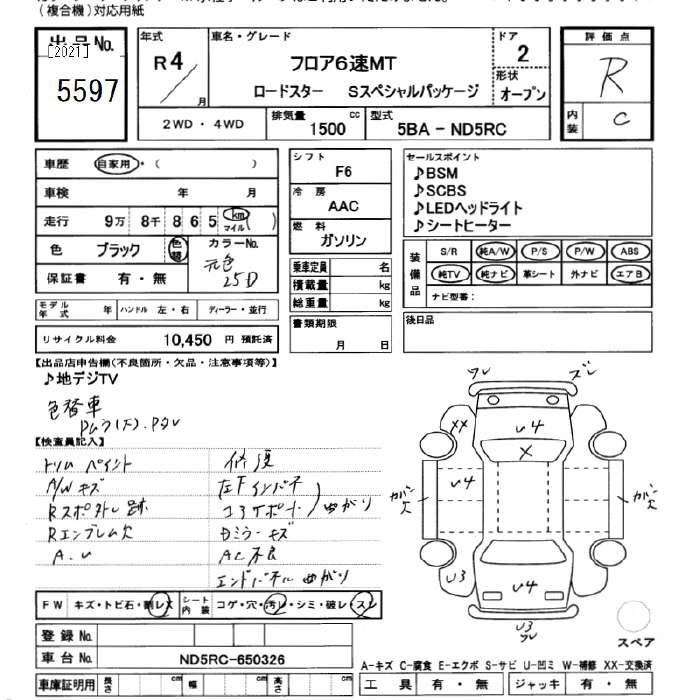 (複合機)対応用紙
出品No.
[2021]
5597
年式
R4
月
車名・グレード
フロア6速MT
ロードスター Sスペシャルパッケージ
ドア
2
形状
オープン
評価点
R
内装
C
2WD・4WD
排気量
1500
cc
型式
5BA - ND5RC
車歴
自家用・( )
車検
年 月
走行
9万 8千 8 6 5
km
マイル
( )
色
ブラック
色替
カラーNo.
元色
25D
保証書
有・無
シフト
F6
冷房
AAC
燃料
ガソリン
乗車定員 名
積載量 kg
総重量 kg
セールスポイント
♪BSM
♪SCBS
♪LEDヘッドライト
♪シートヒーター
装備品
S/R 純A/W P/S P/W ABS
純TV 純ナビ 革シート 外ナビ エアB
ナビ型番:
モデル年式 年
ハンドル 左・右
ディーラー・並行
リサイクル料金 10,450 円 預託済
書類期限
月 日
後日品
【出品店申告欄(不良箇所・欠品・注意事項等)】
♪地デジTV
色替車
【検査員記入】
トリム ペイント
A/W キズ
Rスポ外し跡
Rエンブレム欠
A.U
修復
左Fインパネ
コアサポート
曲がり
Dミラーキズ
AC不良
エンドパネル曲がり
ワレ
ズレ
XX
U4
X
U4
カバー欠
カバー欠
U3
U4
U3
ワレ
スペア
FW キズ・トビ石・割レ・ス
シート内装 コゲ・穴・汚レ・シミ・破レ・スレ
登録No.
車台No. ND5RC-650326
A-キズ C-腐食 E-エクボ S-サビ U-凹ミ W-補修 XX-交換済
車庫証明用
長さ cm
幅 cm
高さ cm
工具 有・無
ジャッキ 有・無